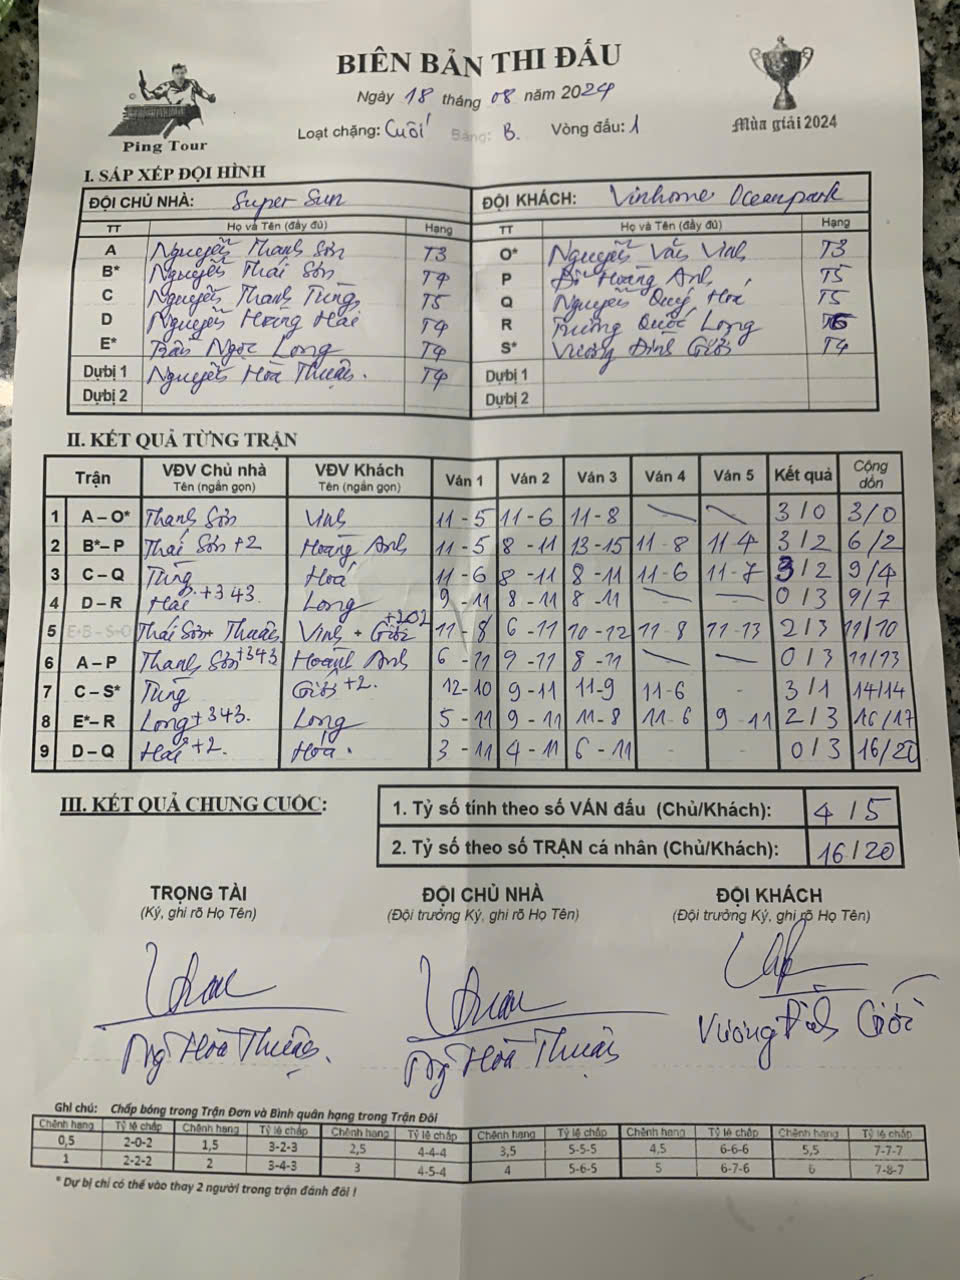 BIÊN BẢN THI ĐẤU
Ngày 18 tháng 08 năm 2024
Loạt chặng: Cuối Bảng: B. Vòng đấu: 1
Ping Tour
Mùa giải 2024
I. SẮP XẾP ĐỘI HÌNH
ĐỘI CHỦ NHÀ: Super Sun ĐỘI KHÁCH: Vinhome Oceanpark
TT Họ và Tên (đầy đủ) Hạng TT Họ và Tên (đầy đủ) Hạng
A Nguyễn Thanh Sơn T3 O* Nguyễn Văn Vinh T3
B* Nguyễn Thái Sơn T4 P Đỗ Hoàng Anh T5
C Nguyễn Thanh Tùng T5 Q Nguyễn Quý Hoá T5
D Nguyễn Hoàng Hải T4 R Trương Quốc Long
E* Trần Ngọc Long T4 S* Vương Đình Giới T4
Dự bị 1 Nguyễn Hoà Thuận. T4 Dự bị 1
Dự bị 2 Dự bị 2
II. KẾT QUẢ TỪNG TRẬN
Trận VĐV Chủ nhà Tên (ngắn gọn) VĐV Khách Tên (ngắn gọn) Ván 1 Ván 2 Ván 3 Ván 4 Ván 5 Kết quả Cộng dồn
1 A – O* Thanh Sơn Vinh 11 - 5 11 - 6 11 - 8 — — 3 / 0 3 / 0
2 B* – P Thái Sơn +2 Hoàng Anh 11 - 5 8 - 11 13 - 15 11 - 8 11 4 3 / 2 6 / 2
3 C – Q Tùng Hoá 11 - 6 8 - 11 8 - 11 11 - 6 11 - 7 3 / 2 9 / 4
4 D – R Hải +343. Long 9 - 11 8 - 11 8 - 11 — — 0 / 3 9 / 7
5 E-B – S-O Thái Sơn + Thuận Vinh + Giới +202 11 - 8 6 - 11 10 - 12 11 - 8 11 - 13 2 / 3 11 / 10
6 A – P Thanh Sơn +343 Hoành Anh 6 - 11 9 - 11 8 - 11 — — 0 / 3 11/13
7 C – S* Tùng Giới +2. 12 - 10 9 - 11 11 - 9 11 - 6 - 3 / 1 14/14
8 E* – R Long +343. Long 5 - 11 9 - 11 11 - 8 11 - 6 9 - 11 2 / 3 16/17
9 D – Q Hải +2. Hoá. 3 - 11 4 - 11 6 - 11 - - 0 / 3 16/20
III. KẾT QUẢ CHUNG CUỘC:
1. Tỷ số tính theo số VÁN đấu (Chủ/Khách): 4 / 5
2. Tỷ số theo số TRẬN cá nhân (Chủ/Khách): 16 / 20
TRỌNG TÀI ĐỘI CHỦ NHÀ ĐỘI KHÁCH
(Ký, ghi rõ Họ Tên) (Đội trưởng Ký, ghi rõ Họ Tên) (Đội trưởng Ký, ghi rõ Họ Tên)
Ng Hoà Thuận. Ng Hoà Thuận Vương Đình Giới
Ghi chú: Chấp bóng trong Trận Đơn và Bình quân hạng trong Trận Đôi
Chênh hạng Tỷ lệ chấp Chênh hạng Tỷ lệ chấp Chênh hạng Tỷ lệ chấp Chênh hạng Tỷ lệ chấp Chênh hạng Tỷ lệ chấp Chênh hạng Tỷ lệ chấp
0,5 2-0-2 1,5 3-2-3 2,5 4-4-4 3,5 5-5-5 4,5 6-6-6 5,5 7-7-7
1 2-2-2 2 3-4-3 3 4-5-4 4 5-6-5 5 6-7-6 6 7-8-7
* Dự bị chỉ có thể vào thay 2 người trong trận đánh đôi !